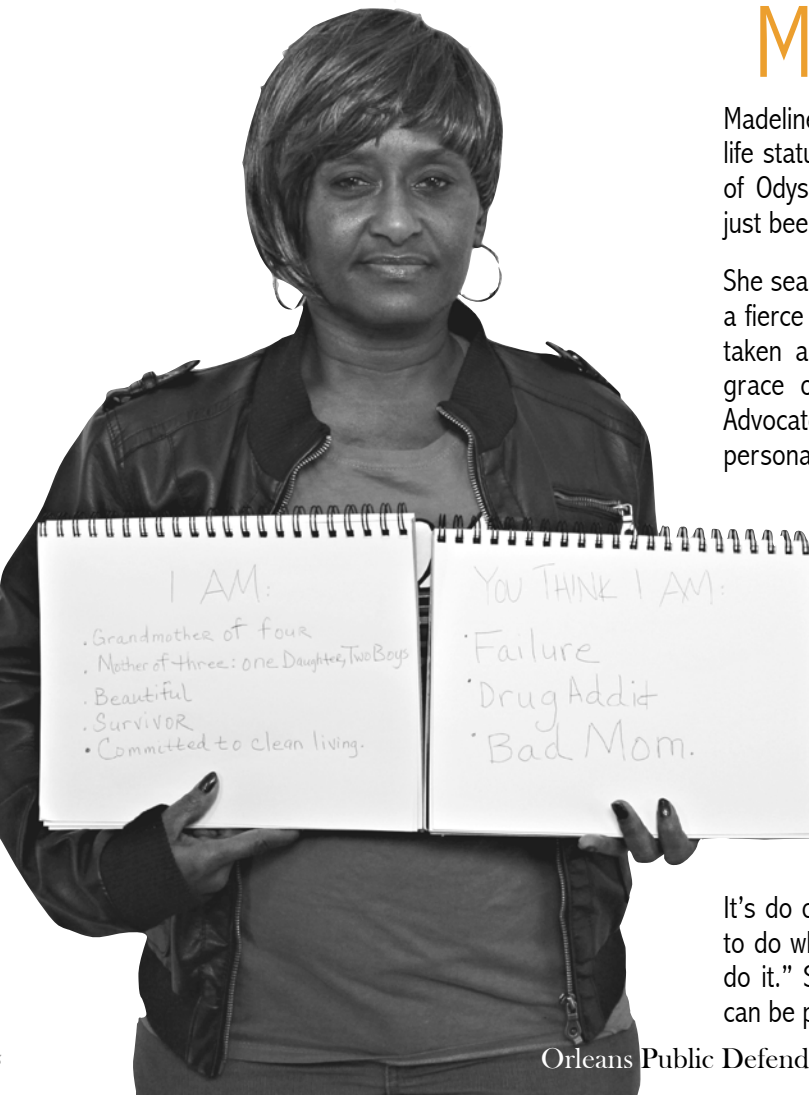 M
Madeline
life statu
of Odys
just bee
She sea
a fierce
taken a
grace o
Advocat
persona
I AM:
. Grandmother of four
. Mother of three: one Daughter, Two Boys
. Beautiful
. Survivor
• Committed to clean living.
YOU THINK I AM:
• Failure
• Drug Addit
• Bad Mom.
It’s do o
to do wh
do it.” S
can be p
Orleans Public Defend